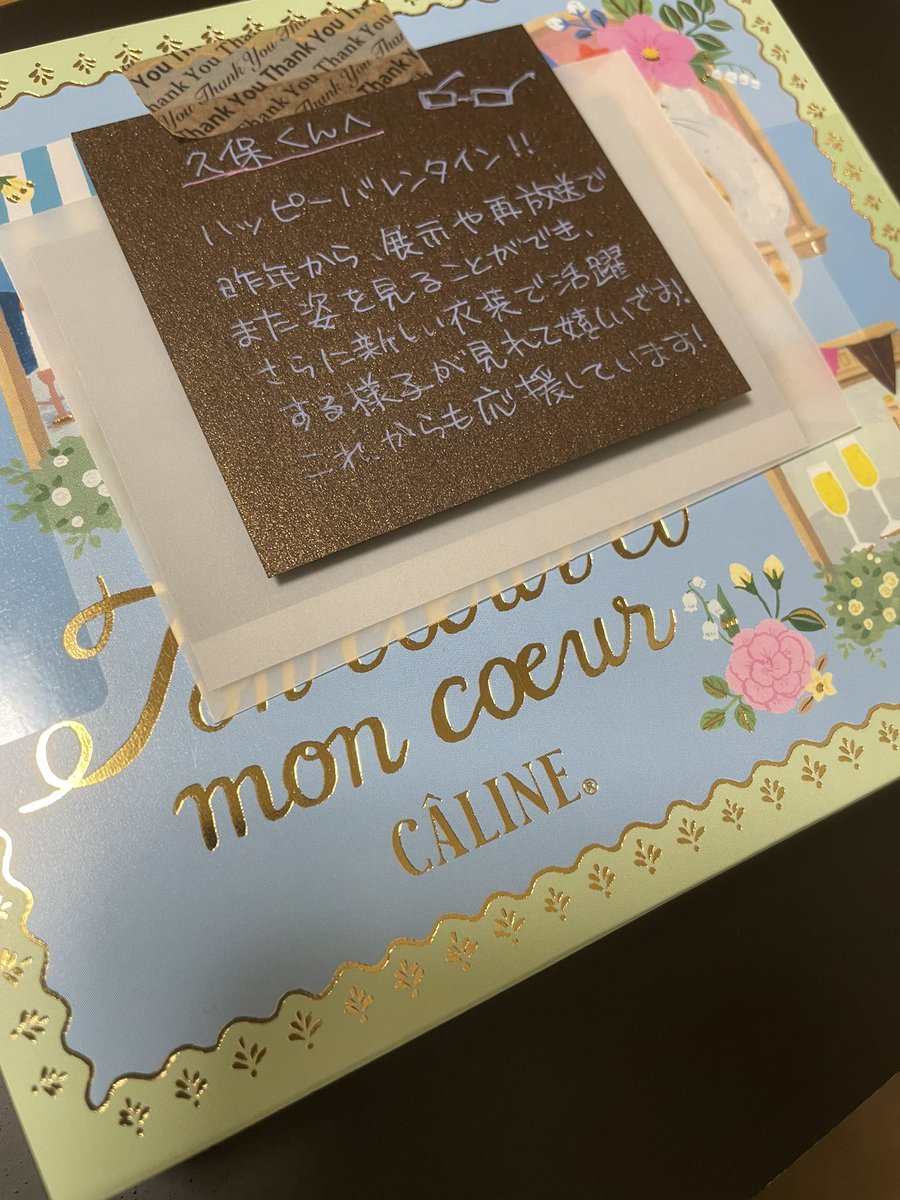 You Thank You Thank
Thank You Thank You Thank You
You Thank You Thank You
Thank You Thank You
久保くんへ
ハッピーバレンタイン!!
昨年から、展示や再放送で
また姿を見ることができ、
さらに新しい衣装で活躍
する様子が見れて嬉しいです!
これからも応援しています!
mon coeur
CÂLINE®